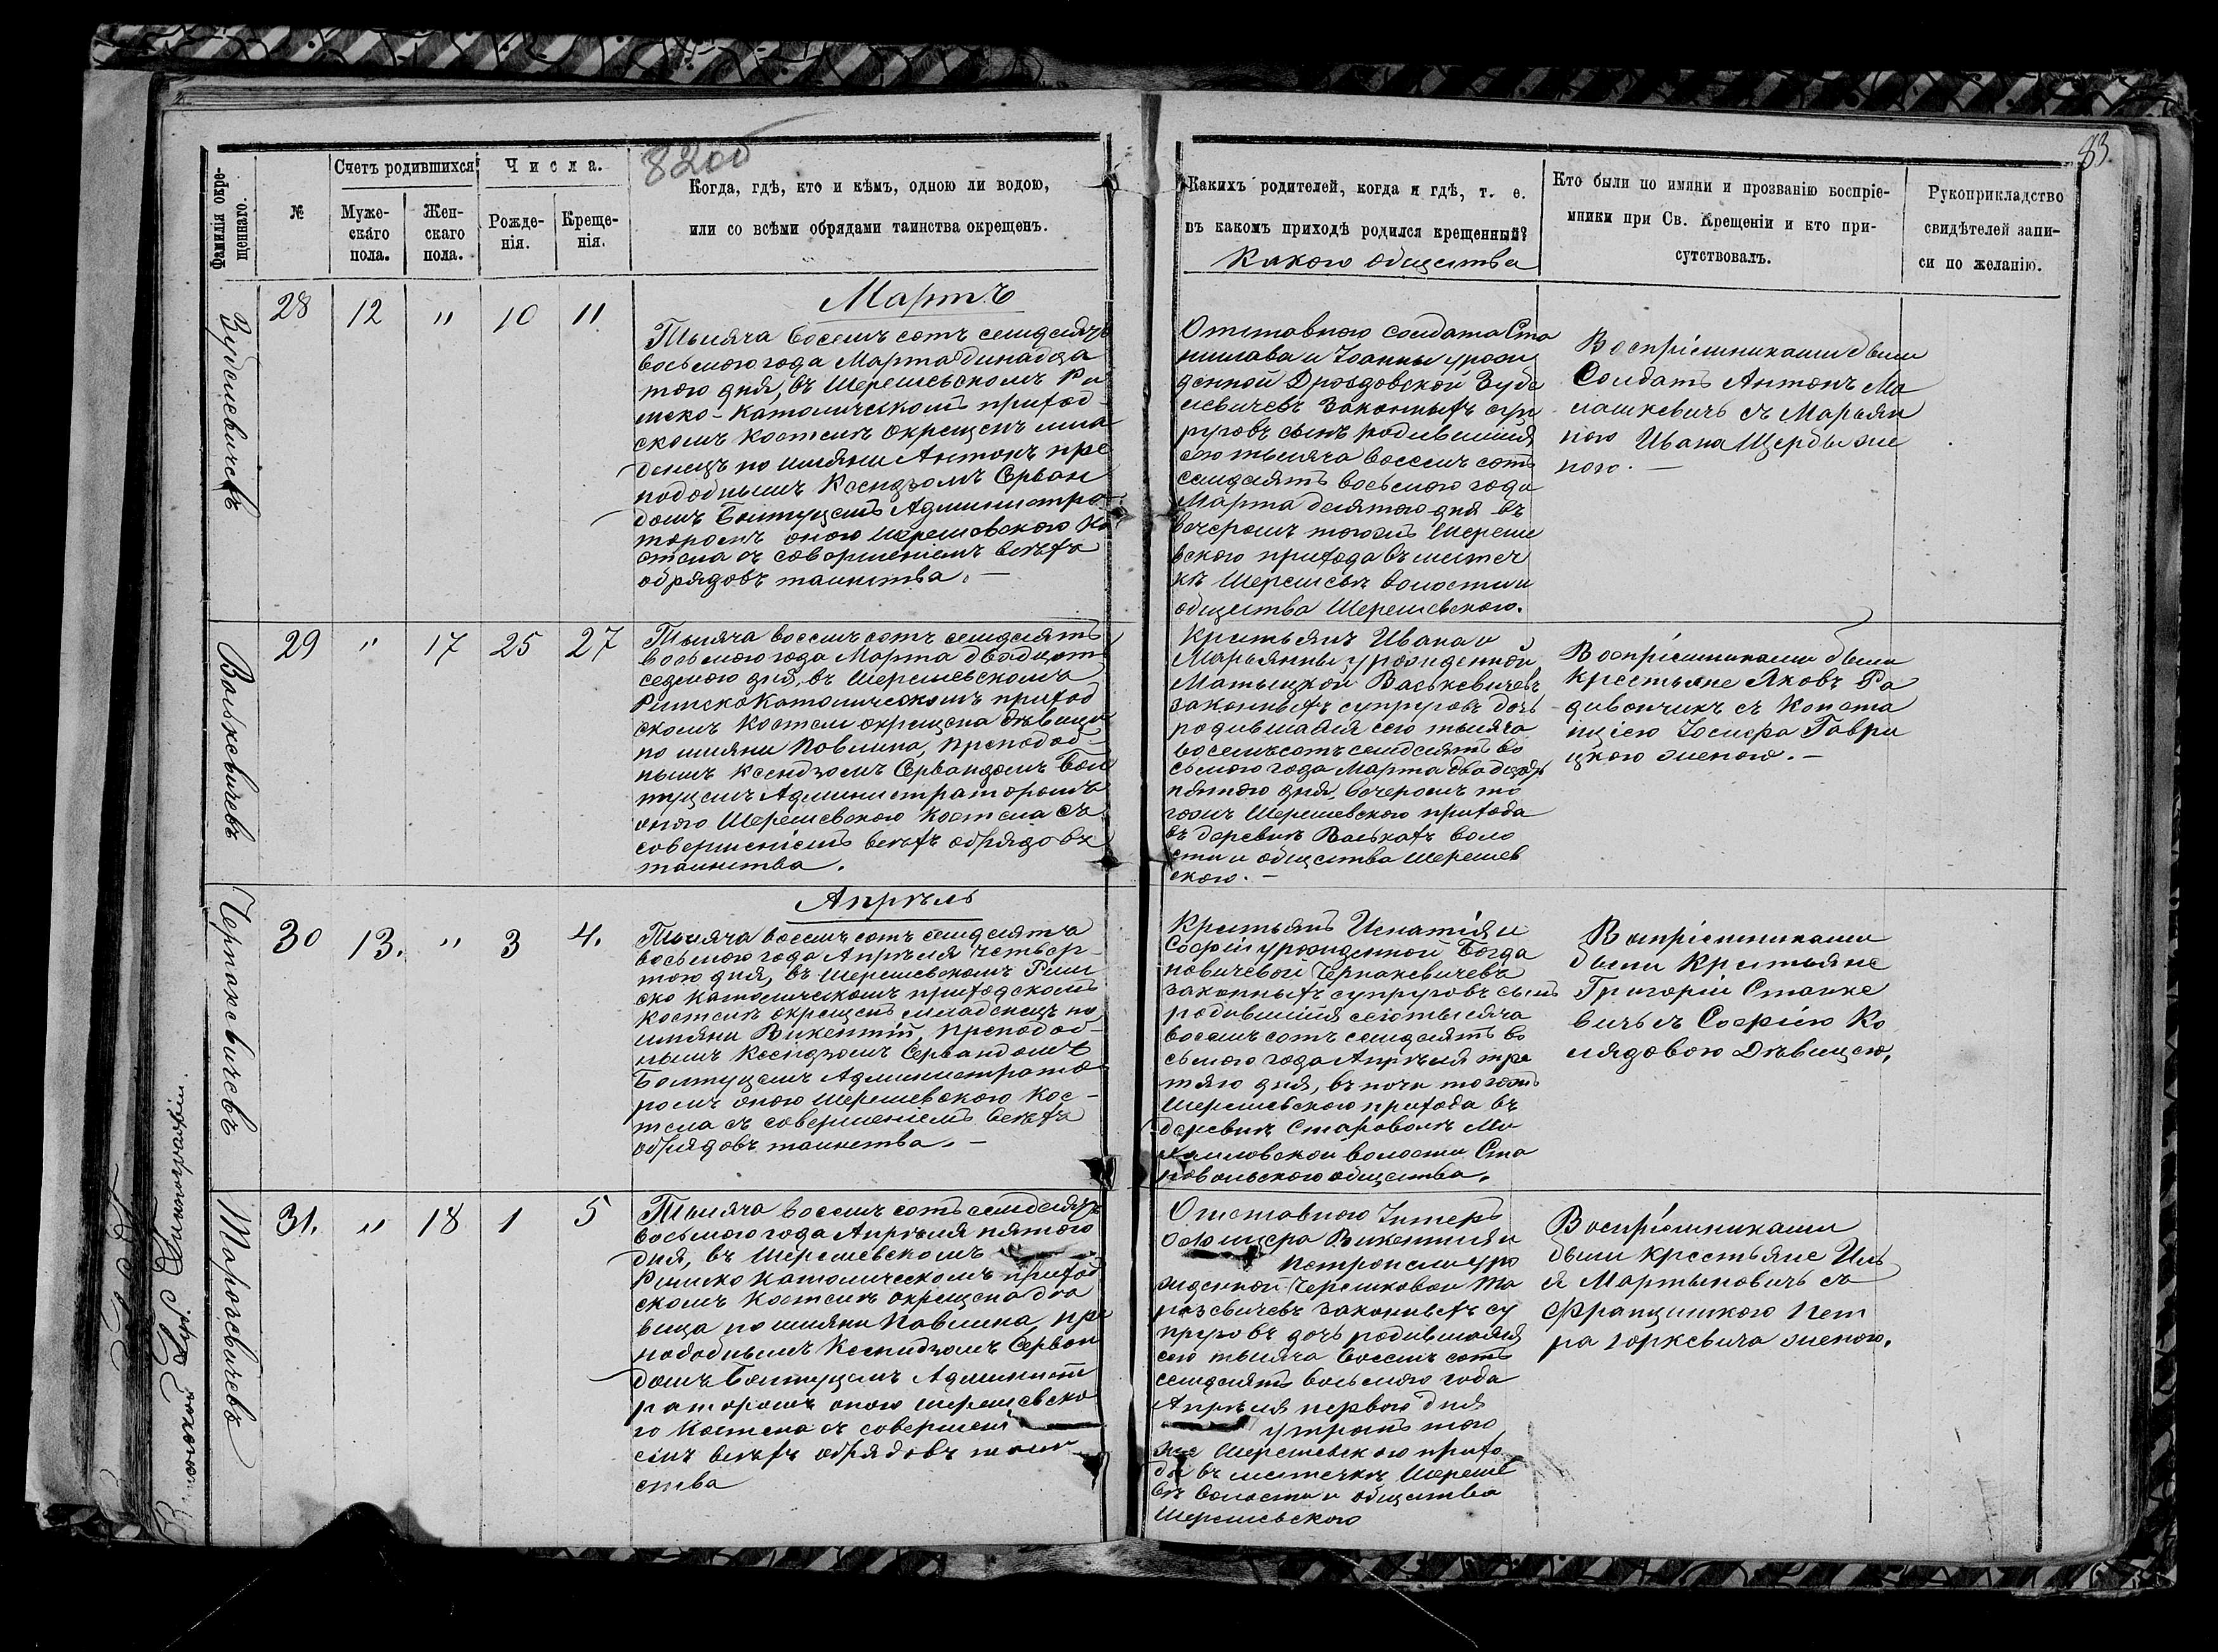 82об
83
Фамилія окре-
щеннаго.
№
Счетъ родившихся
Муже-
скаго
пола.
Жен-
скаго
пола.
Числа.
Рожде-
нія.
Креще-
нія.
Когда, гдѣ, кто и кѣмъ, одною ли водою,
или со всѣми обрядами таинства окрещенъ.
Какихъ родителей, когда и гдѣ, т. е.
въ какомъ приходѣ родился крещенный?
Какого общества
Кто были по имяни и прозванію воспріе-
мники при Св. Крещеніи и кто при-
сутствовалъ.
Рукоприкладство
свидѣтелей запи-
си по желанію.
Зубелевичевъ
28
12
"
10
11
Мартъ
Тысяча восемь сотъ семдесятъ
восьмого года Марта одинадца
того дня, въ Шерешевскомъ Ри
мско-Католическомъ приход-
скомъ Костелѣ окрещенъ мла
денецъ по имяни Антонъ пре
подобнымъ Ксендзомъ Серван
домъ Болтуцемъ Администра
торомъ оного Шерешовского Ко
стела съ совершеніемъ всѣхъ
обрядовъ таинства. —
Отставного солдата Ста
нислава и Іоанны урож
денной Дроздовской Зубе
левичевъ законныхъ суп
руговъ сынъ родившійся
сего тысяча восемь сотъ
семдесятъ восьмого года
Марта десятого дня въ
вечеромъ тогожъ Шереше
вского прихода въ местеч
кѣ Шерешевѣ волости и
общества Шерешевского.
Воспріемниками были
Солдатъ Антонъ Ма
лашкевичъ съ Марьян
ною Ивана Щербы же
ною. —
Воськевичевъ
29
"
17
25
27
Тысяча восемь сотъ семдесятъ
восьмого года Марта двадцать
седмого дня, въ Шерешевскомъ
Римско Католическомъ приход
скомъ Костели окрещена дѣвица
по имяни Павлина, преподоб-
нымъ Ксендзомъ Сервандомъ Бол
туцемъ Администраторомъ
оного Шерешевского Костела съ
совершеніемъ всѣхъ обрядовъ
таинства.
Крестьянъ Ивана и
Марьянны урожденной
Матыцкой Васькевичевъ
законныхъ супруговъ дочь
родившаяся сего тысяча
восемьсотъ семдесятъ во
сьмого года Марта двадцать
пятого дня, вечеромъ то
гожъ Шерешевского прихода
въ деревни Воськахъ воло
сти и общества Шерешев
ского. —
Воспріемниками были
Крестьяне Яковъ Ра
дивончикъ съ Конста
нціею Іосифа Гаври
цкою женою. —
Чернакевичевъ
30
13.
"
3
4.
Апрѣль
Тысяча восемь сотъ семдесятъ
восьмого года Апрѣля четвер-
того дня, въ Шерешевскомъ Рим
ско Католическомъ приходскомъ
Костелѣ окрещенъ младенецъ по
имяни Викентій, преподоб-
нымъ Ксендзомъ Сервандомъ
Болтуцемъ Администрато
ромъ оного Шерешевского Кос-
тела съ совершеніемъ всѣхъ
обрядовъ таинства. —
Крестьянъ Игнатія и
Софіи урожденной Богда
новичевой Чернакевичевъ
законныхъ супруговъ сынъ
родившійся сего тысяча
восемь сотъ семдесятъ во
сьмого года Апрѣля тре
тяго дня, въ ночи тогожъ
Шерешевского прихода въ
деревнѣ Староволѣ Ми
хайловской волости Ста
ровольского общества.
Воспріемниками
были Крестьяне
Григорій Станке
вичъ съ Софіею Ко
лядовою Дѣвицею.
Тарасевичевъ
31.
"
18
1
5
Тысяча восемь сотъ семдесятъ
восьмого года Апрѣля пятого
дня, въ Шерешевскомъ
Римско Католическомъ приход
скомъ Костелѣ окрещена дѣ
вица по имяни Павлина, пре
подобнымъ Ксендзомъ Серван
домъ Болтуцемъ Админист
раторомъ оного Шерешевско
го Костела съ совершені
емъ всѣхъ обрядовъ таин
ства
Отставного Унтеръ
Офицера Викентія и
Петронели уро
жденной Черешковой Та
расевичевъ законныхъ су
пруговъ дочь родившаяся
сего тысяча восемь сотъ
семдесятъ восьмого года
Апрѣля первого дня
утромъ того
же Шерешевского прихо
да въ местечкѣ Шереше
вѣ волости и общества
Шерешевского
Воспріемниками
были крестьяне Иль
я Мартыновичъ съ
Францишкою Пет
ра Юркевича женою.
Типографіи.